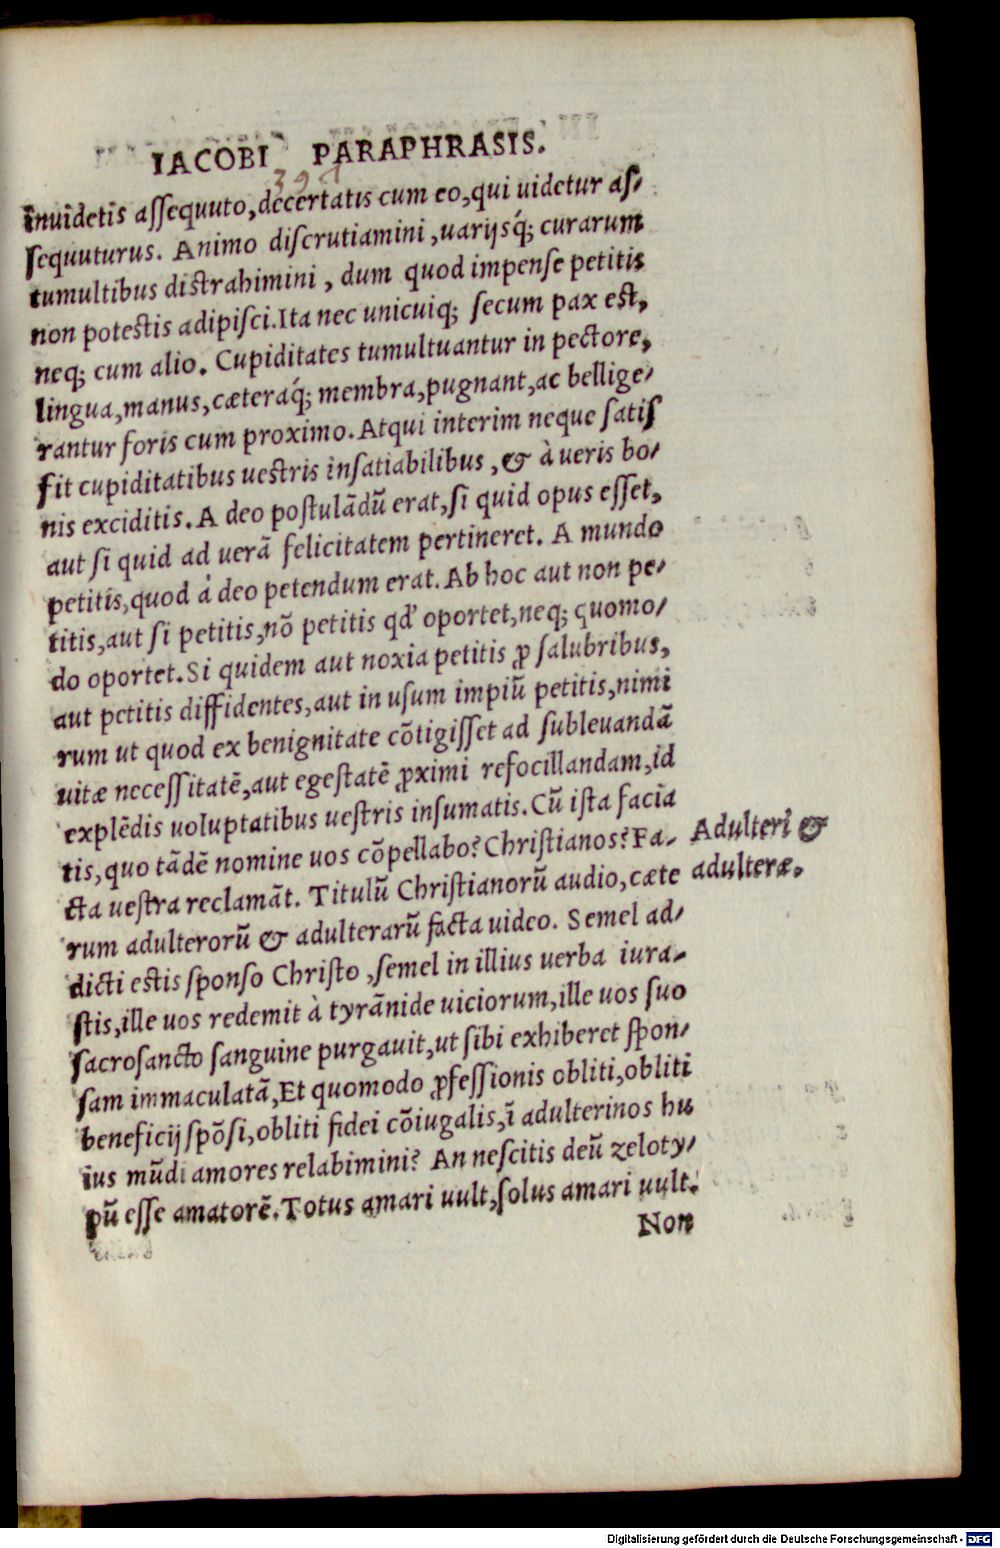 IACOBI PARAPHRASIS.
391
inuidetis assequuto, decertatis cum eo, qui uidetur as/
sequuturus. Animo discrutiamini, uarijsq́; curarum
tumultibus distrahimini, dum quod impense petitis
non potestis adipisci. Ita nec unicuiq; secum pax est,
neq; cum alio. Cupiditates tumultuantur in pectore,
lingua, manus, cæteraq́; membra, pugnant, ac bellige/
rantur foris cum proximo. Atqui interim neque satis
fit cupiditatibus uestris insatiabilibus, & à ueris bo/
nis exciditis. A deo postulādū erat, si quid opus esset,
aut si quid ad uerā felicitatem pertineret. A mundo
petitis, quod á deo petendum erat. Ab hoc aut non pe/
titis, aut si petitis, nō petitis qd' oportet, neq; quomo/
do oportet. Si quidem aut noxia petitis ꝓ salubribus,
aut petitis diffidentes, aut in usum impiū petitis, nimi
rum ut quod ex benignitate cōtigisset ad subleuandā
uitæ necessitatē, aut egestatē ꝓximi refocillandam, id
explēdis uoluptatibus uestris insumatis. Cū ista facia
tis, quo tādē nomine uos cōpellabo? Christianos? Fa-
cta uestra reclamāt. Titulū Christianorū audio, cæte
rum adulterorū & adulterarū facta uideo. Semel ad/
dicti estis sponso Christo, semel in illius uerba iura-
stis, ille uos redemit à tyrānide uiciorum, ille uos suo
sacrosancto sanguine purgauit, ut sibi exhiberet spon/
sam immaculatā, Et quomodo ꝓfessionis obliti, obliti
beneficij spōsi, obliti fidei cōiugalis, ī adulterinos hu
ius mūdi amores relabimini? An nescitis deū zeloty/
pū esse amatorē. Totus amari uult, solus amari uult.
Non
Adulteri &
adulteræ.
Digitalisierung gefördert durch die Deutsche Forschungsgemeinschaft - DFG